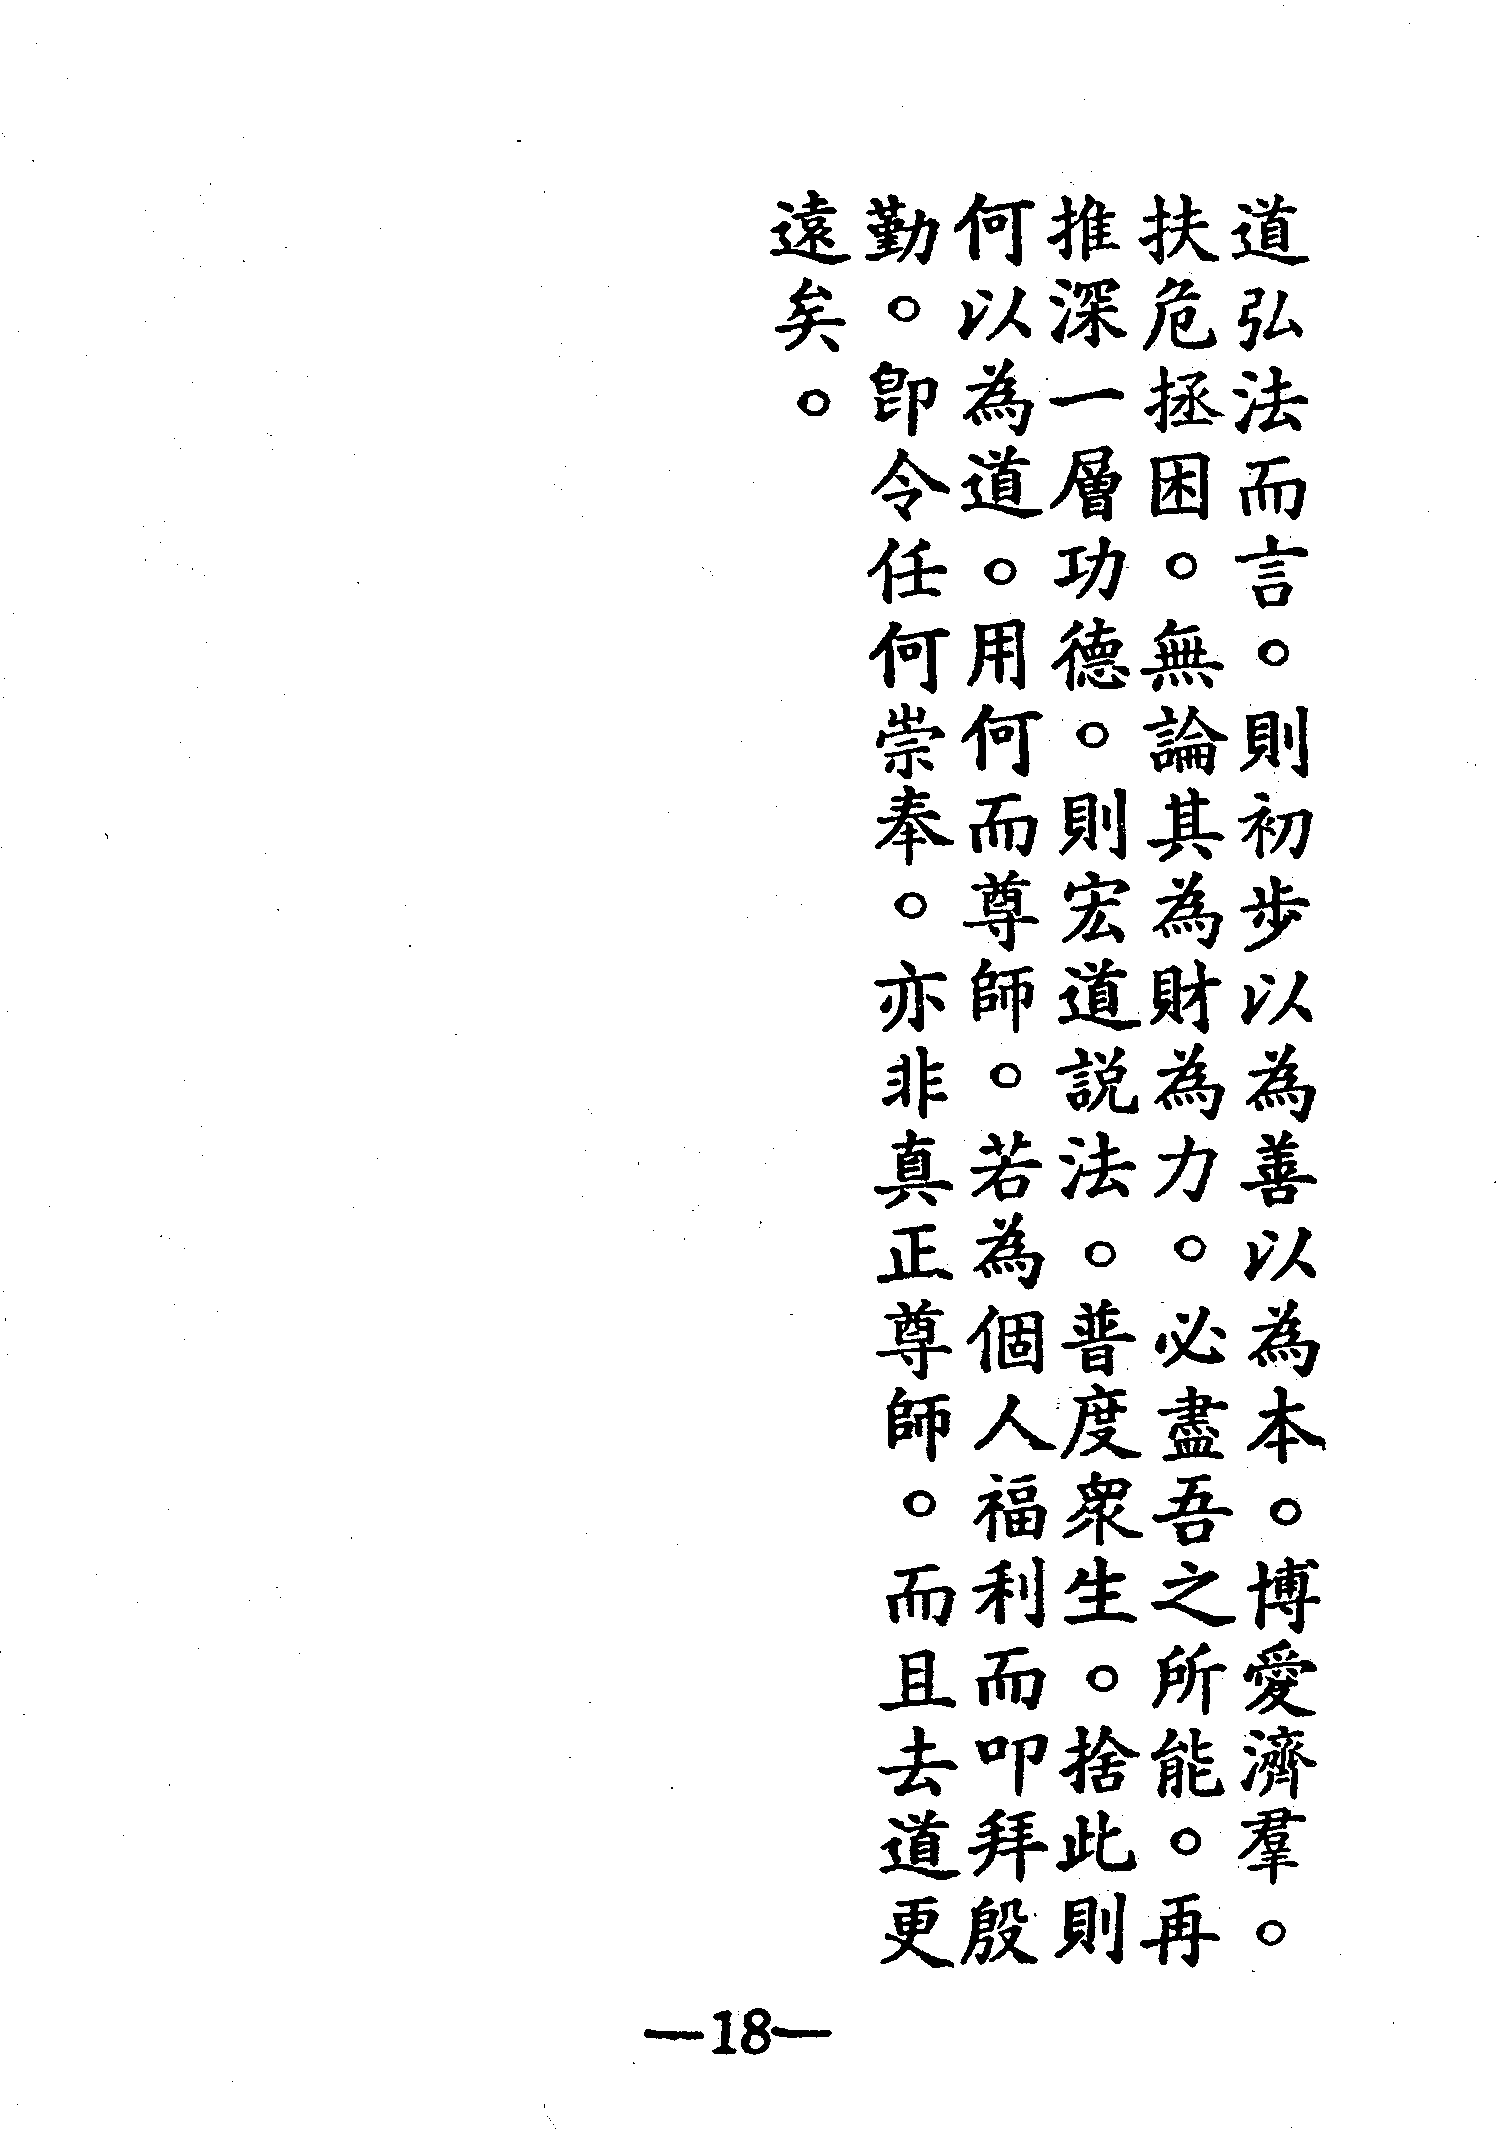 道弘法而言。則初步以為善以為本。博愛濟羣。
扶危拯困。無論其為財為力。必盡吾之所能。再
推深一層功德。則宏道説法。普度衆生。捨此則
何以為道。用何而尊師。若為個人福利而叩拜殷
勤。卽令任何崇奉。亦非真正尊師。而且去道更
遠矣。
—18—